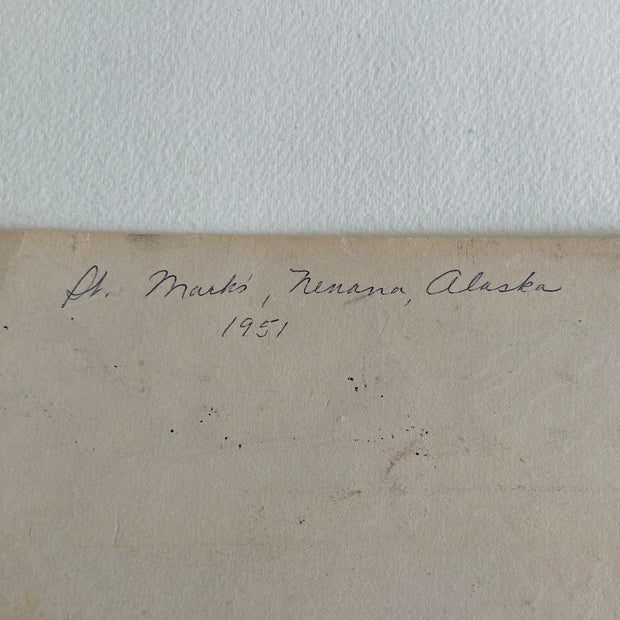 St. Mark's, Nenana, Alaska
1951